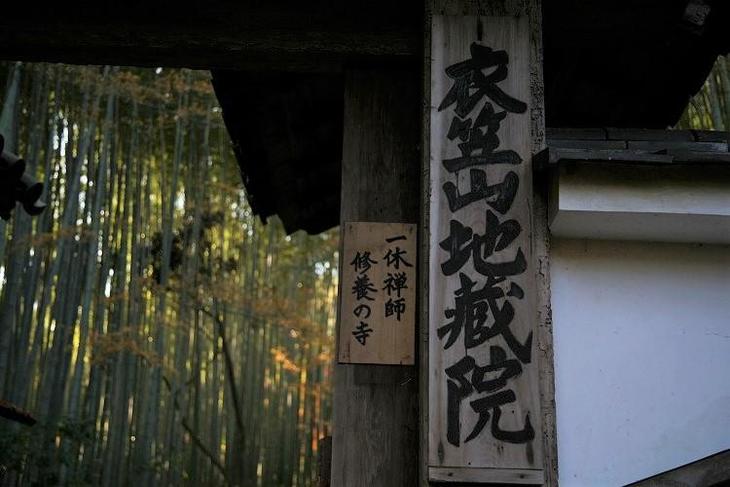 衣笠山地蔵院
一休禅師
修養の寺